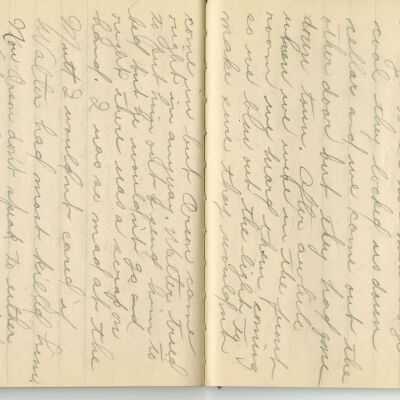 coal they locked us down
cellar and we come out the
other door but they had gone
down town. After awhile
when we were in the front
room we heard them coming
so we blew out the light to
make sure they wouldn't
come in but Orson came
right in anyway. Walter tried
to put him out & send him to
bed but he wouldn't go and
right there was a scrap on
hand. I was so mad at the
Mutt I wouldn't cared if
Walter had most killed him.
Now Orson don't speak to either